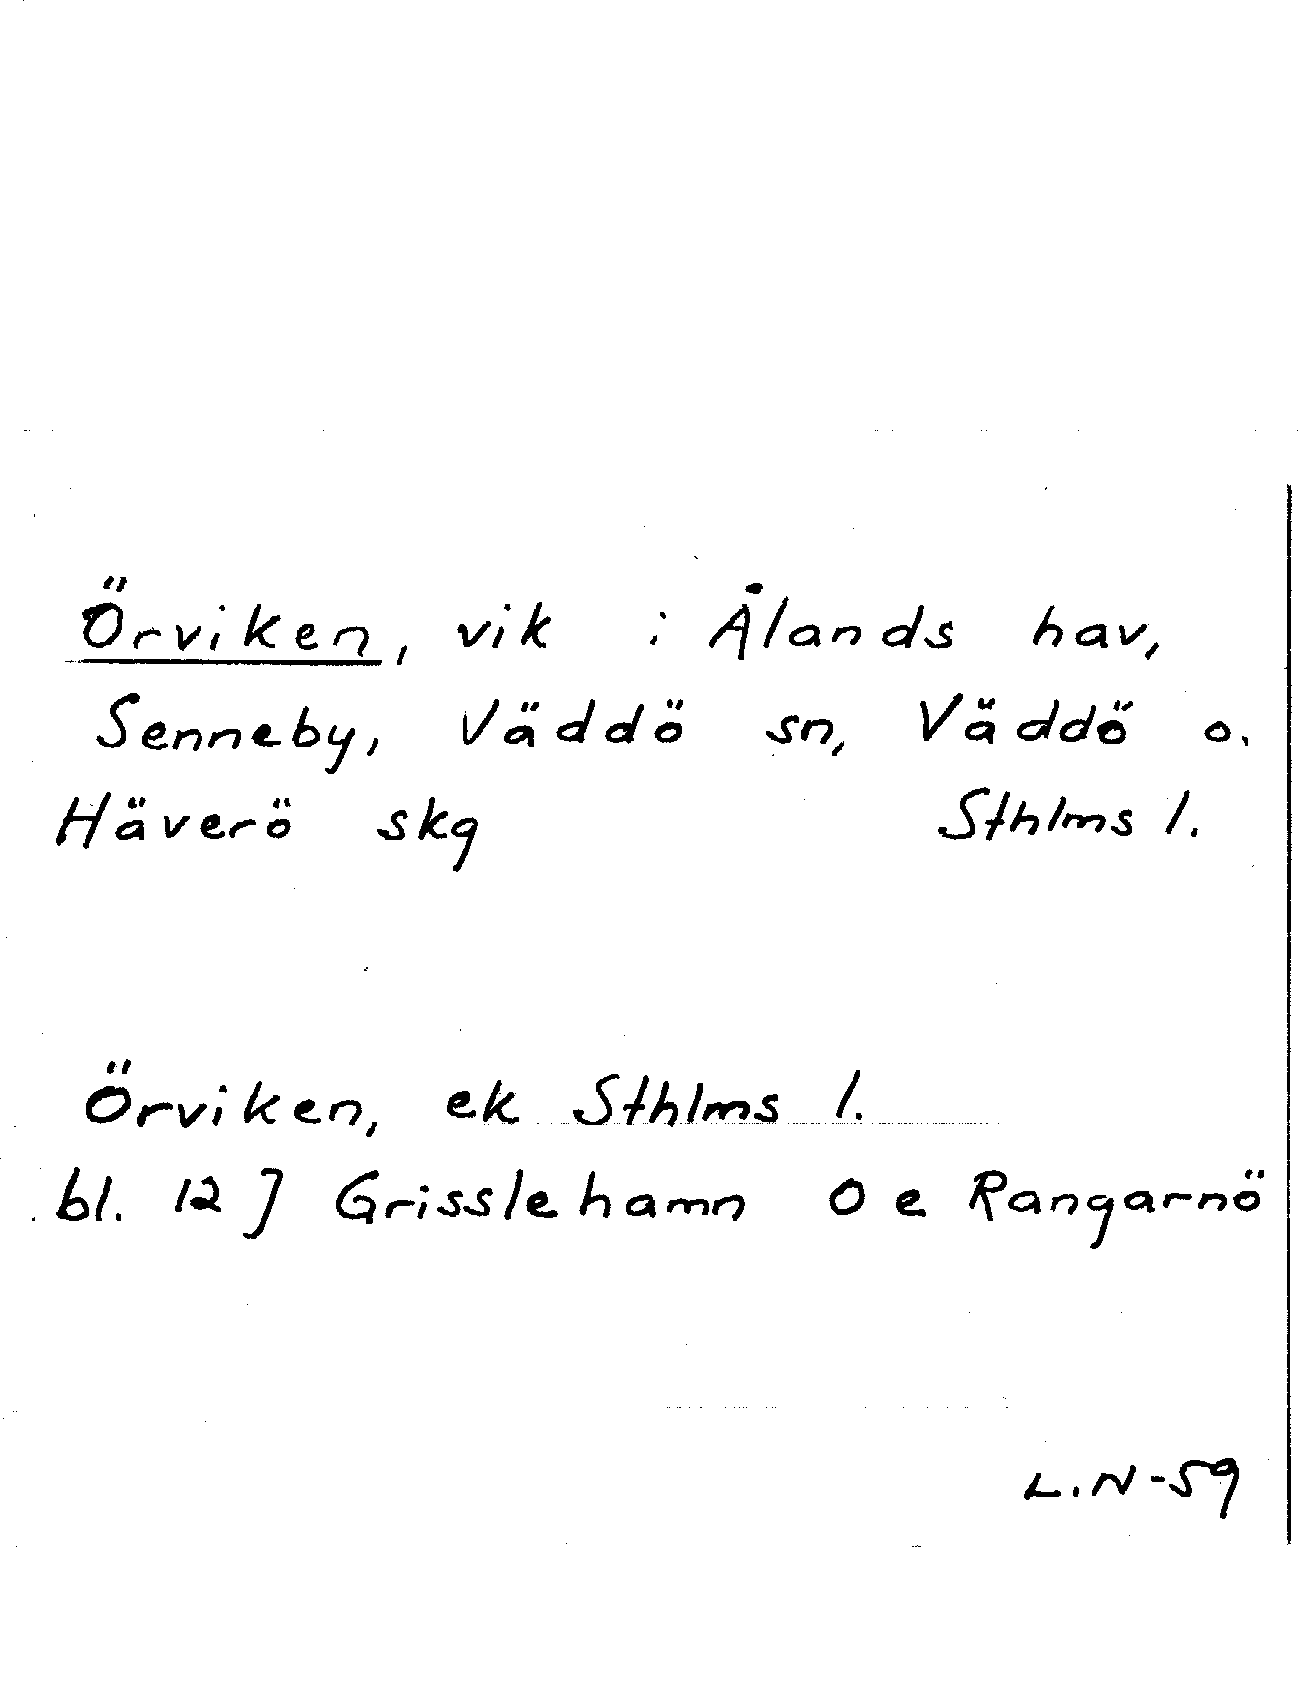 Örviken, vik i Ålands hav,
Senneby, Väddö sn, Väddö o.
Häverö skg Sthlms l.
Örviken, ek Sthlms l.
bl. 12 J Grisslehamn O e Rangarnö
L.N-59